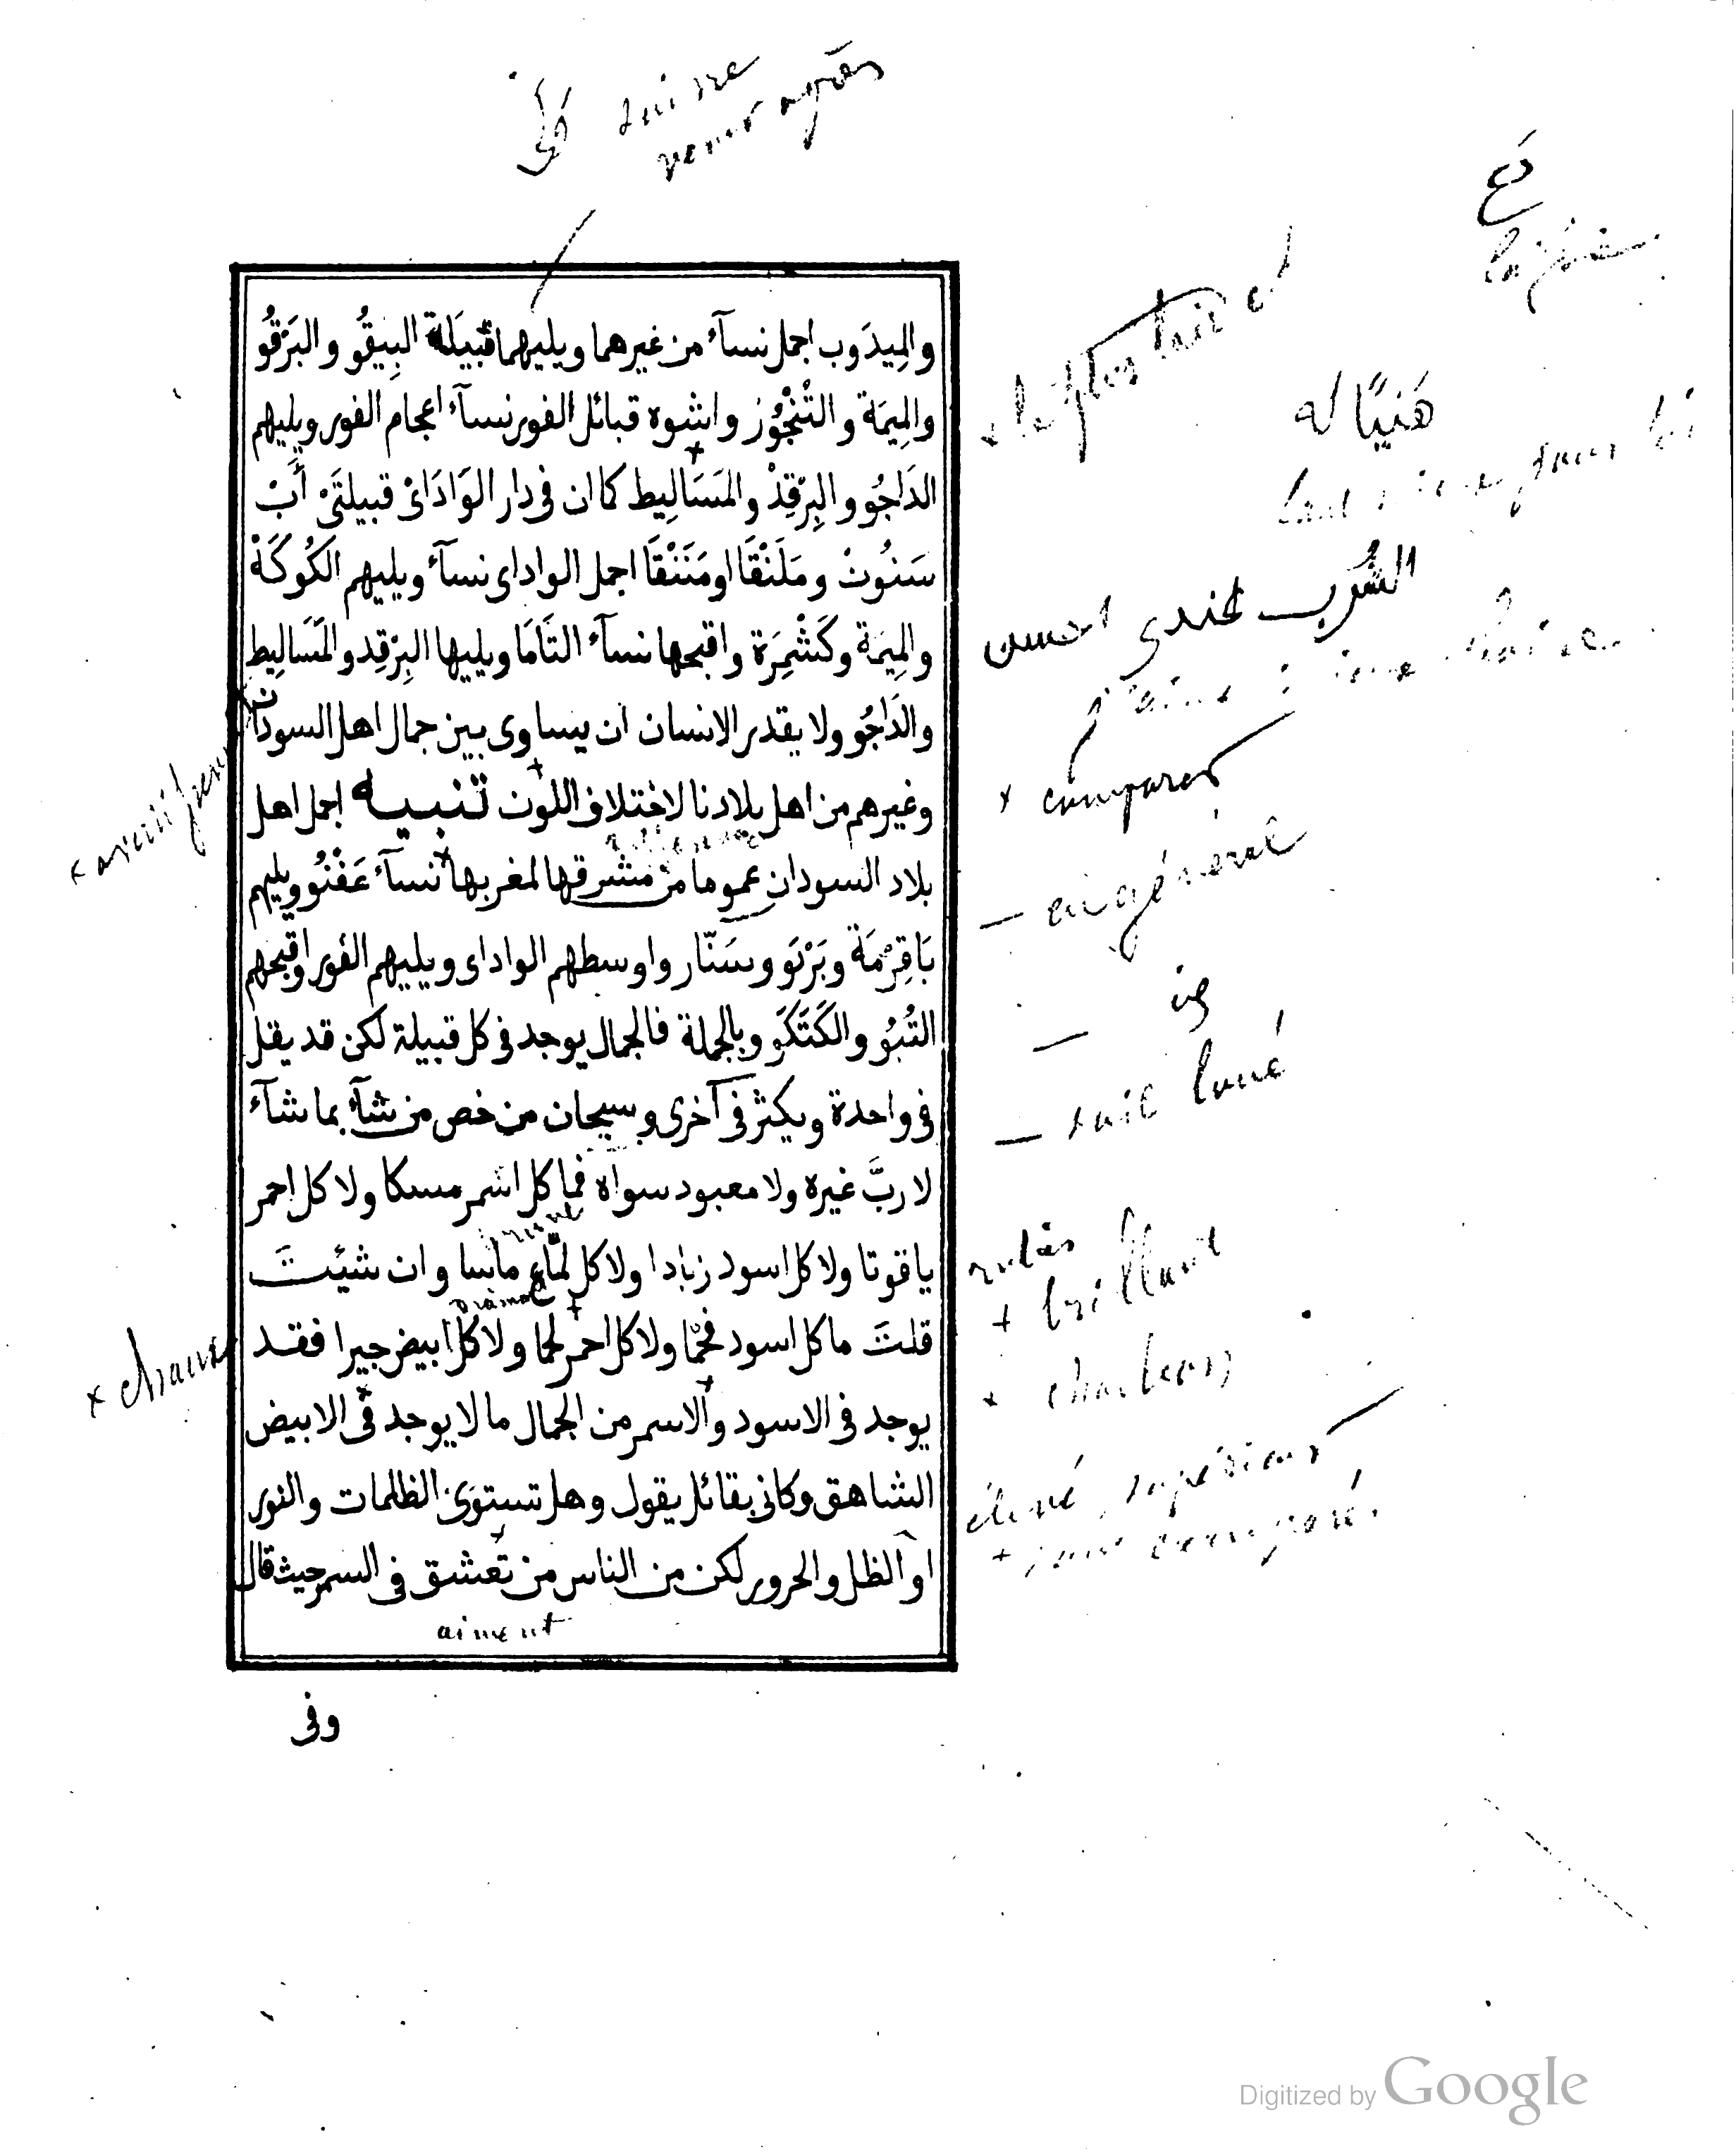 suivre
venir après
والمِيدَوب اجمل نسآء من غيرهما ويليهما قبيلة البِيقُو والبَرْقُو
والمِيمَة والتُنْجُوْر واشوه قبائل الفور نسآء اعجام الفور ويليهم
الدَاجُو والبِرْقِدْ والمَسَالِيط كما ان فى دار الوَادَاىْ قبيلتَىْ أَبْ
سَنُونْ ومَلَنْقَا اومَنَنْقَا اجمل الواداى نسآء ويليهم الكُوكَةْ
والمِيمَة وكَشْمِرَة واقبحها نسآء التَامَا ويليها البِرْقِد والمَسَالِيط
والدَاجُو ولا يقدر الانسان ان يساوى بين جمال اهل السودان
وغيرهم من اهل بلادنا لاختلاف اللون تنبيه اجمل اهل
بلاد السودان عموما من مشرقها لمغربها نسآء عَفْنُو ويليهم
بَاقِرْمَة وبَرْنَو وسَنّار واوسطهم الواداى ويليهم الفور واقبحهم
التُبُو والكَتَكَو وبالجملة فالجمال يوجد فى كل قبيلة لكن قد يقل
فى واحدة ويكثر فى آخرى وسبحان من خص من شآء بما شآء
لا ربَّ غيره ولا معبود سواه فما كل اسمر مسكا ولا كل احمر
ياقوتا ولا كل اسود زبادا ولا كل لمّاع ماسا وان شئتَ
قلتَ ما كل اسود فحما ولا كل احمر لحما ولا كل ابيض جيرا فقد
يوجد فى الاسود والاسمر من الجمال ما لا يوجد فى الابيض
الشاهق وكانى بقائل يقول وهل تستوى الظلمات والنور
او الظل والحرور لكن من الناس من تعشق فى السمر حيث قال
aiment
وفى
+ le plus laid
هَنيًا له
الشُرب عندى احسن
+ comparer
— en général
— soit loué
rubis
+ brillant
+ charbon
élevé, supérieur
+ chaux
Digitized by Google